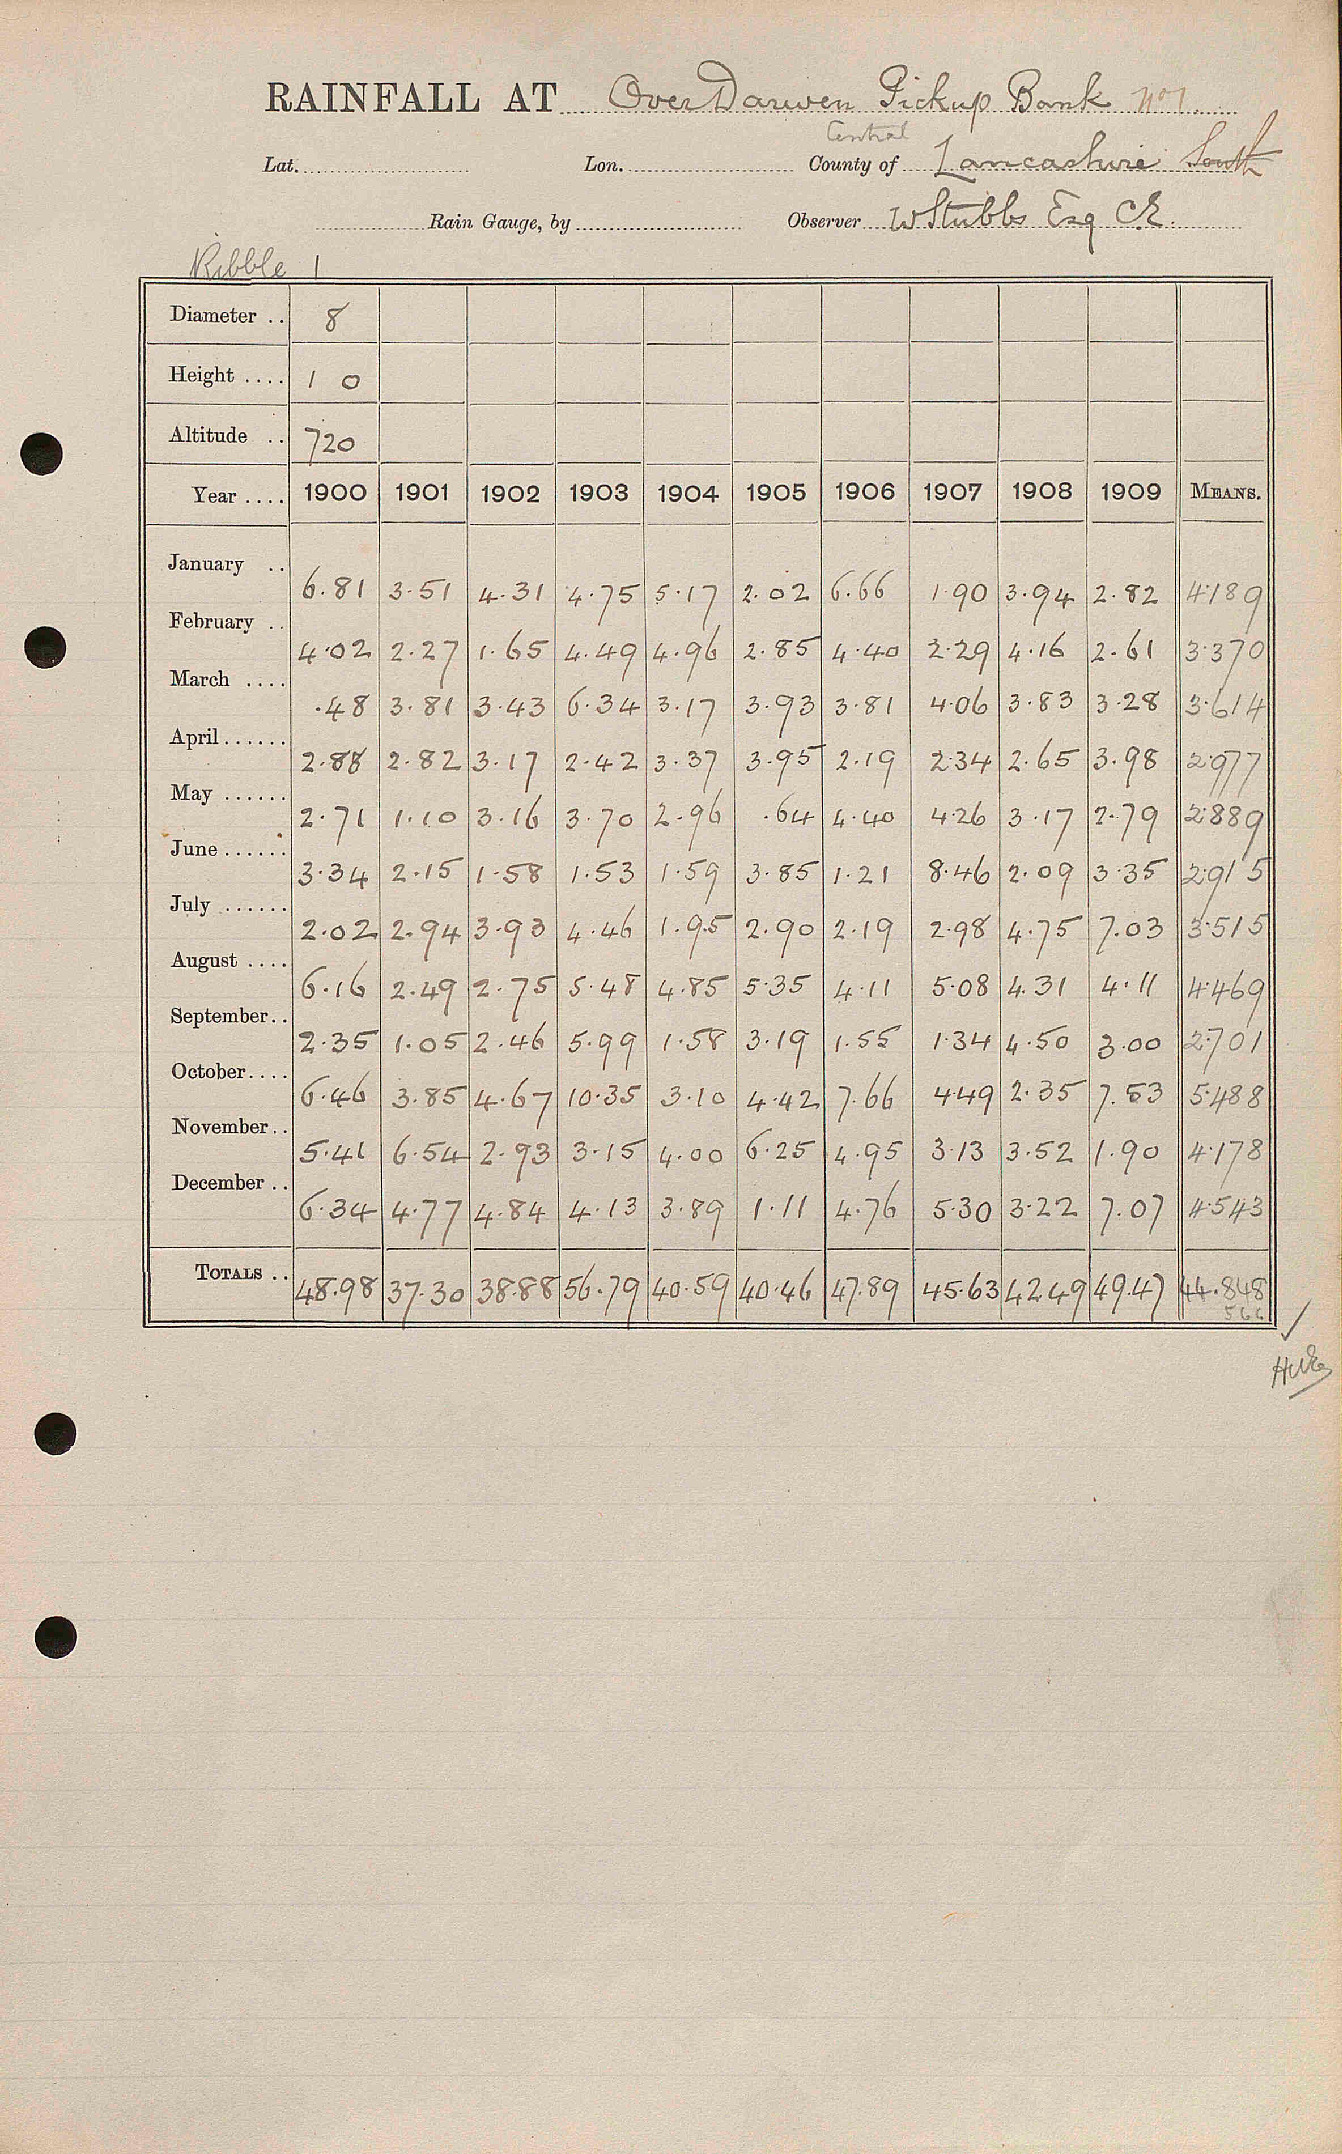 RAINFALL AT Over Darwen Pickup Bank No 1
Central
Lat. Lon. County of Lancashire South
Rain Gauge, by Observer W Stubbs Esq C.E.
Ribble 1
Diameter .. 8
Height .... 1 0
Altitude .. 720
Year .... 1900 1901 1902 1903 1904 1905 1906 1907 1908 1909 MEANS.
January .. 6.81 3.51 4.31 4.75 5.17 2.02 6.66 1.90 3.94 2.82 4.189
February .. 4.02 2.27 1.65 4.49 4.96 2.85 4.40 2.29 4.16 2.61 3.370
March .... .48 3.81 3.43 6.34 3.17 3.93 3.81 4.06 3.83 3.28 3.614
April...... 2.88 2.82 3.17 2.42 3.37 3.95 2.19 2.34 2.65 3.98 2.977
May ...... 2.71 1.10 3.16 3.70 2.96 .64 4.40 4.26 3.17 2.79 2.889
June ...... 3.34 2.15 1.58 1.53 1.59 3.85 1.21 8.46 2.09 3.35 2.915
July ...... 2.02 2.94 3.93 4.46 1.95 2.90 2.19 2.98 4.75 7.03 3.515
August .... 6.16 2.49 2.75 5.48 4.85 5.35 4.11 5.08 4.31 4.11 4.469
September.. 2.35 1.05 2.46 5.99 1.58 3.19 1.55 1.34 4.50 3.00 2.701
October.... 6.46 3.85 4.67 10.35 3.10 4.42 7.66 4.49 2.35 7.53 5.488
November.. 5.41 6.54 2.93 3.15 4.00 6.25 4.95 3.13 3.52 1.90 4.178
December .. 6.34 4.77 4.84 4.13 3.89 1.11 4.76 5.30 3.22 7.07 4.543
TOTALS .. 48.98 37.30 38.88 56.79 40.59 40.46 47.89 45.63 42.49 49.47 44.848